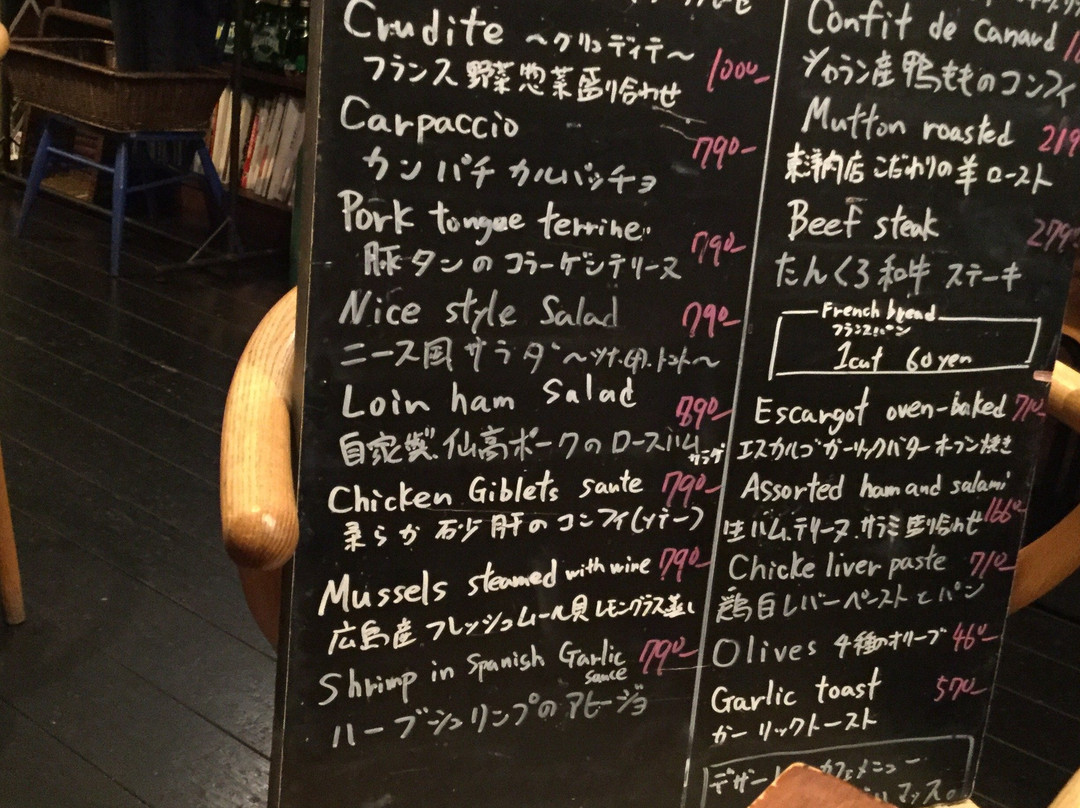 Crudite ～クリュディテ～
フランス野菜惣菜盛り合わせ 1000-
Carpaccio 790-
カンパチ カルパッチョ
Pork tongue terrine 790-
豚タンのコラーゲンテリーヌ
Nice style Salad 790-
ニース風サラダ ～ツナ.卵.トマト～
Loin ham Salad 890-
自家製.仙高ポークのロースハム
サラダ
Chicken Giblets saute 790-
柔らか 砂肝のコンフィ(ソテー)
Mussels steamed with wire 790-
広島産 フレッシュムール貝 レモングラス蒸し
Shrimp in Spanish Garlic 790-
sauce
ハーブシュリンプのアヒージョ
Confit de Canaud
シャラン産鴨もものコンフィ
Mutton roasted 219
東洋肉店こだわりの羊ロースト
Beef steak 279
たんくろ和牛 ステーキ
French bread
フランスパン
1cut 60yen
Escargot oven-baked 710-
エスカルゴ ガーリックバター オーブン焼き
Assorted ham and salami
生ハム.テリーヌ.サラミ盛り合わせ 1660-
Chicke liver paste 710-
鶏白レバーペーストとパン
Olives 4種のオリーブ 460-
Garlic toast 570-
ガーリックトースト
カフェメニュー